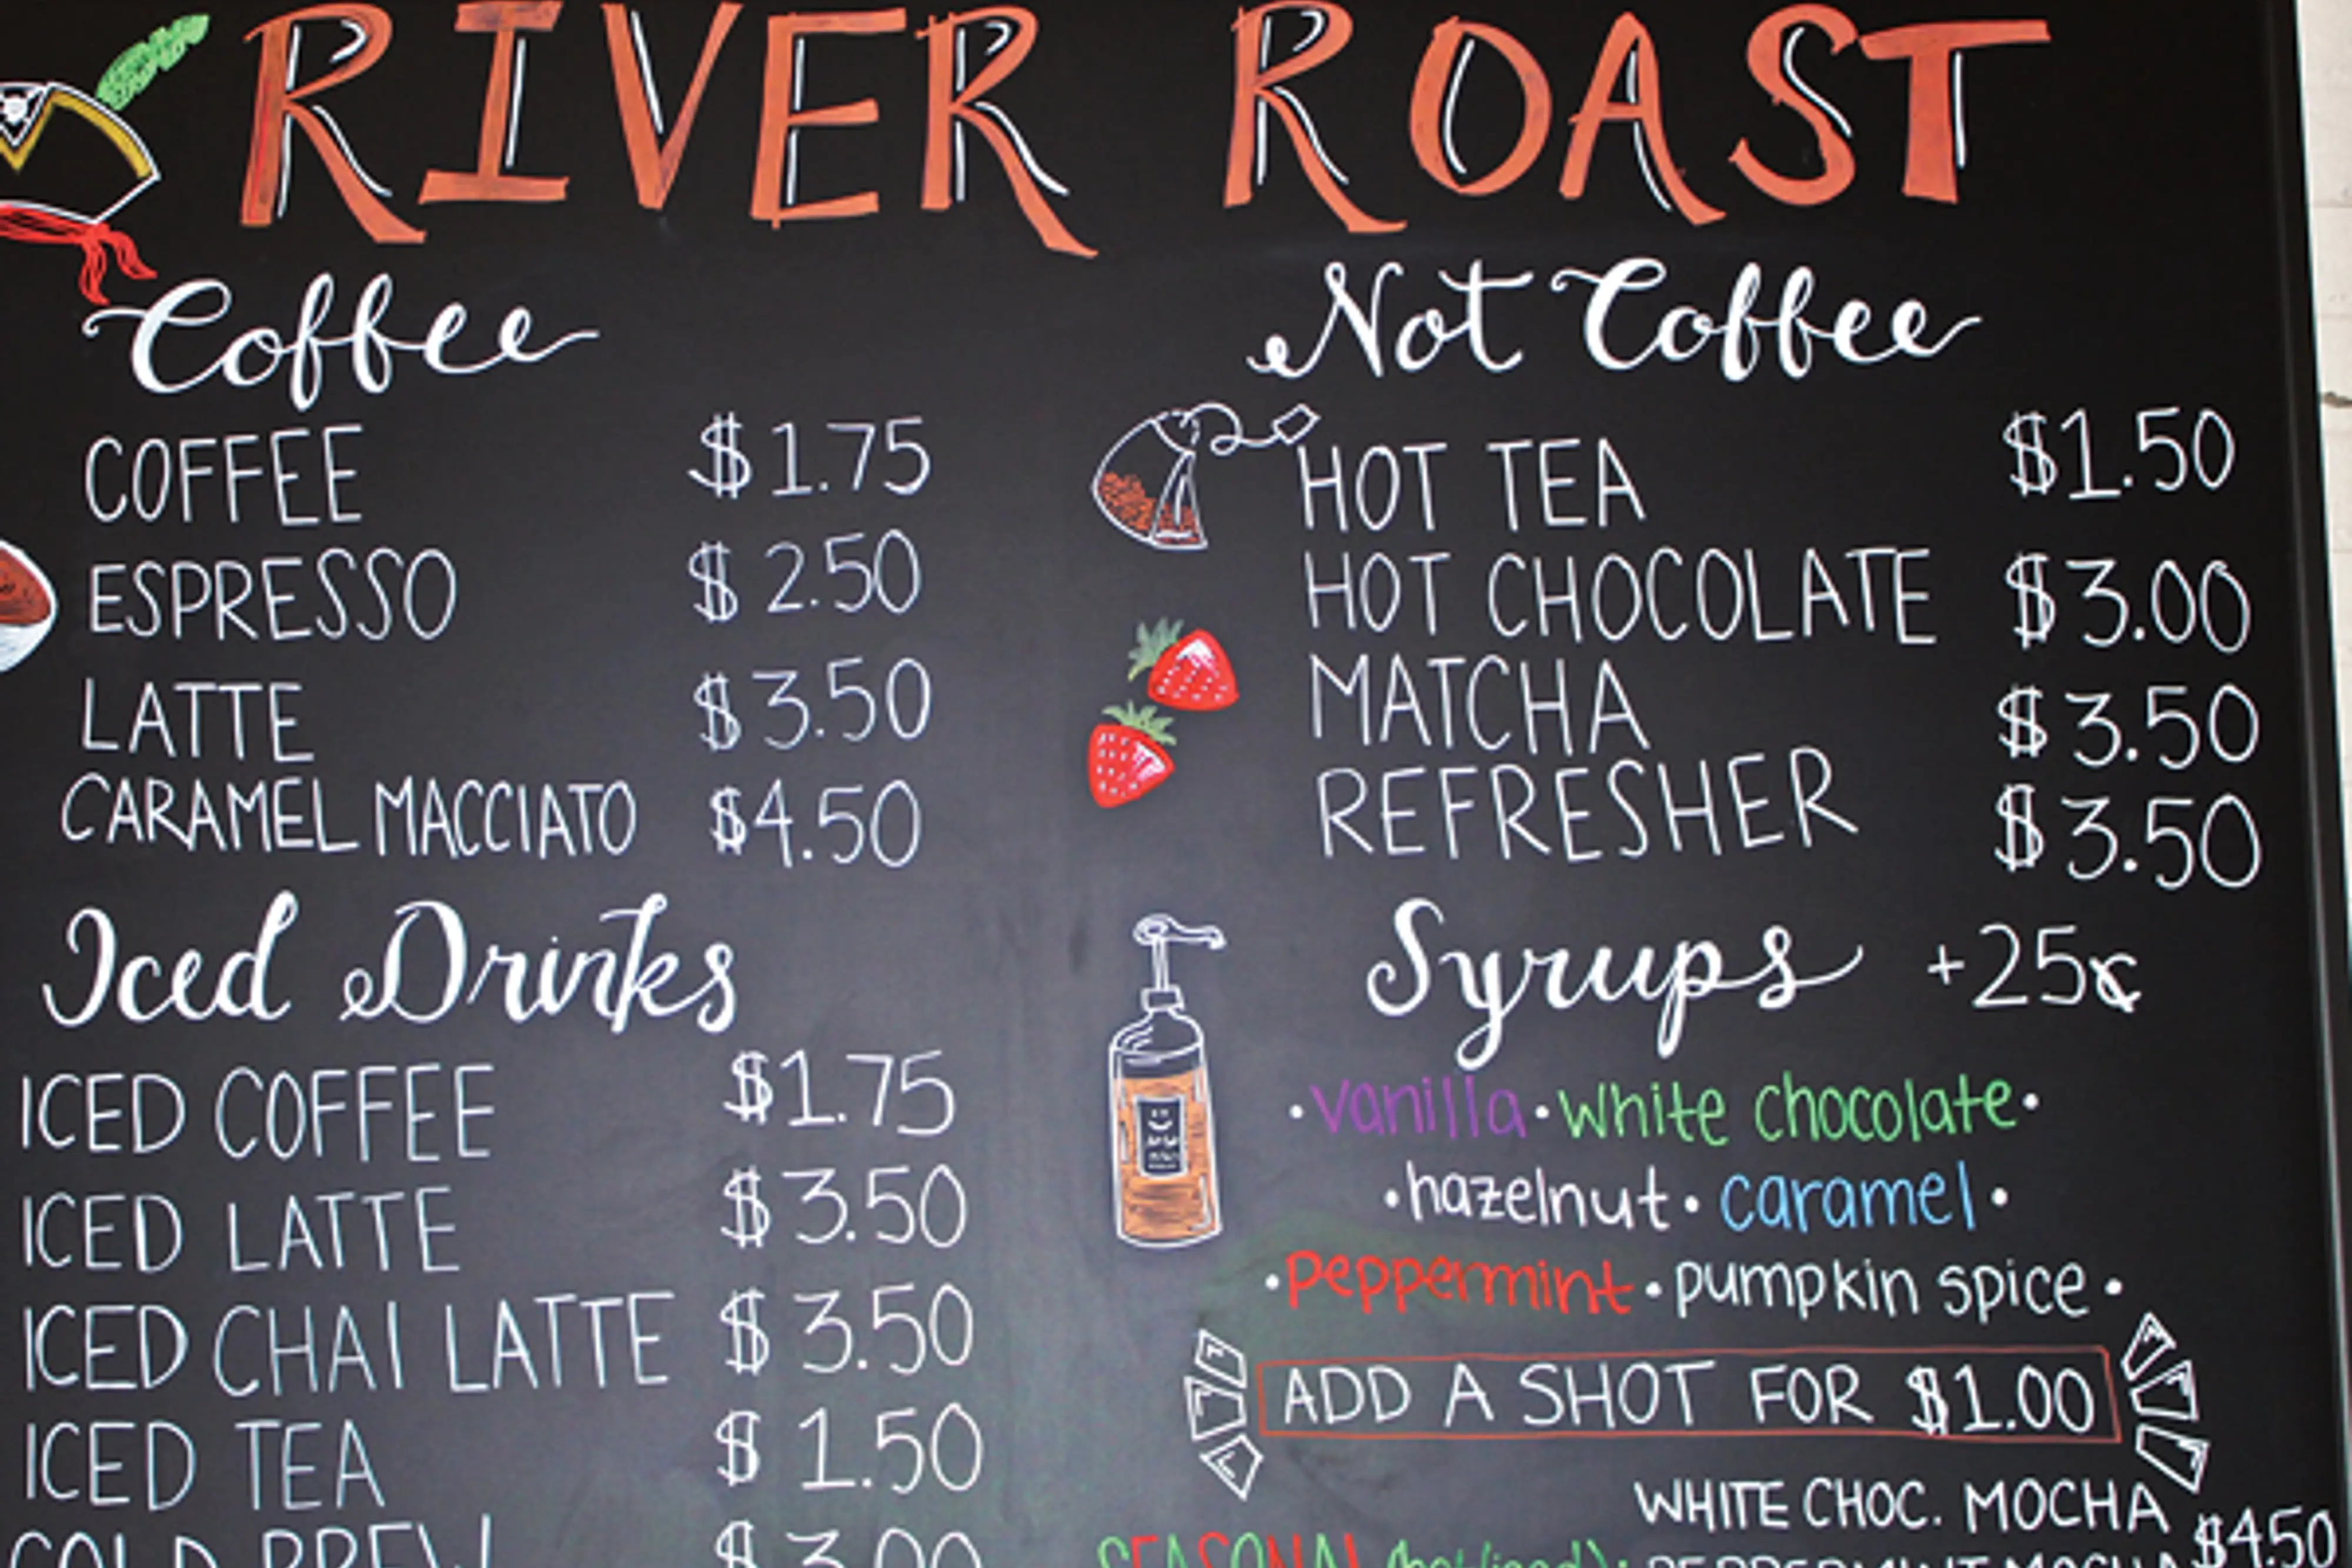 RIVER ROAST
Coffee
COFFEE $1.75
ESPRESSO $2.50
LATTE $3.50
CARAMEL MACCIATO $4.50
Iced Drinks
ICED COFFEE $1.75
ICED LATTE $3.50
ICED CHAI LATTE $3.50
ICED TEA $1.50
COLD BREW $3.00
Not Coffee
HOT TEA $1.50
HOT CHOCOLATE $3.00
MATCHA $3.50
REFRESHER $3.50
Syrups +25¢
•vanilla•white chocolate•
•hazelnut•caramel•
•peppermint•pumpkin spice•
ADD A SHOT FOR $1.00
WHITE CHOC. MOCHA $450
SEASONAL (hot/iced): PEPPERMINT MOCHA